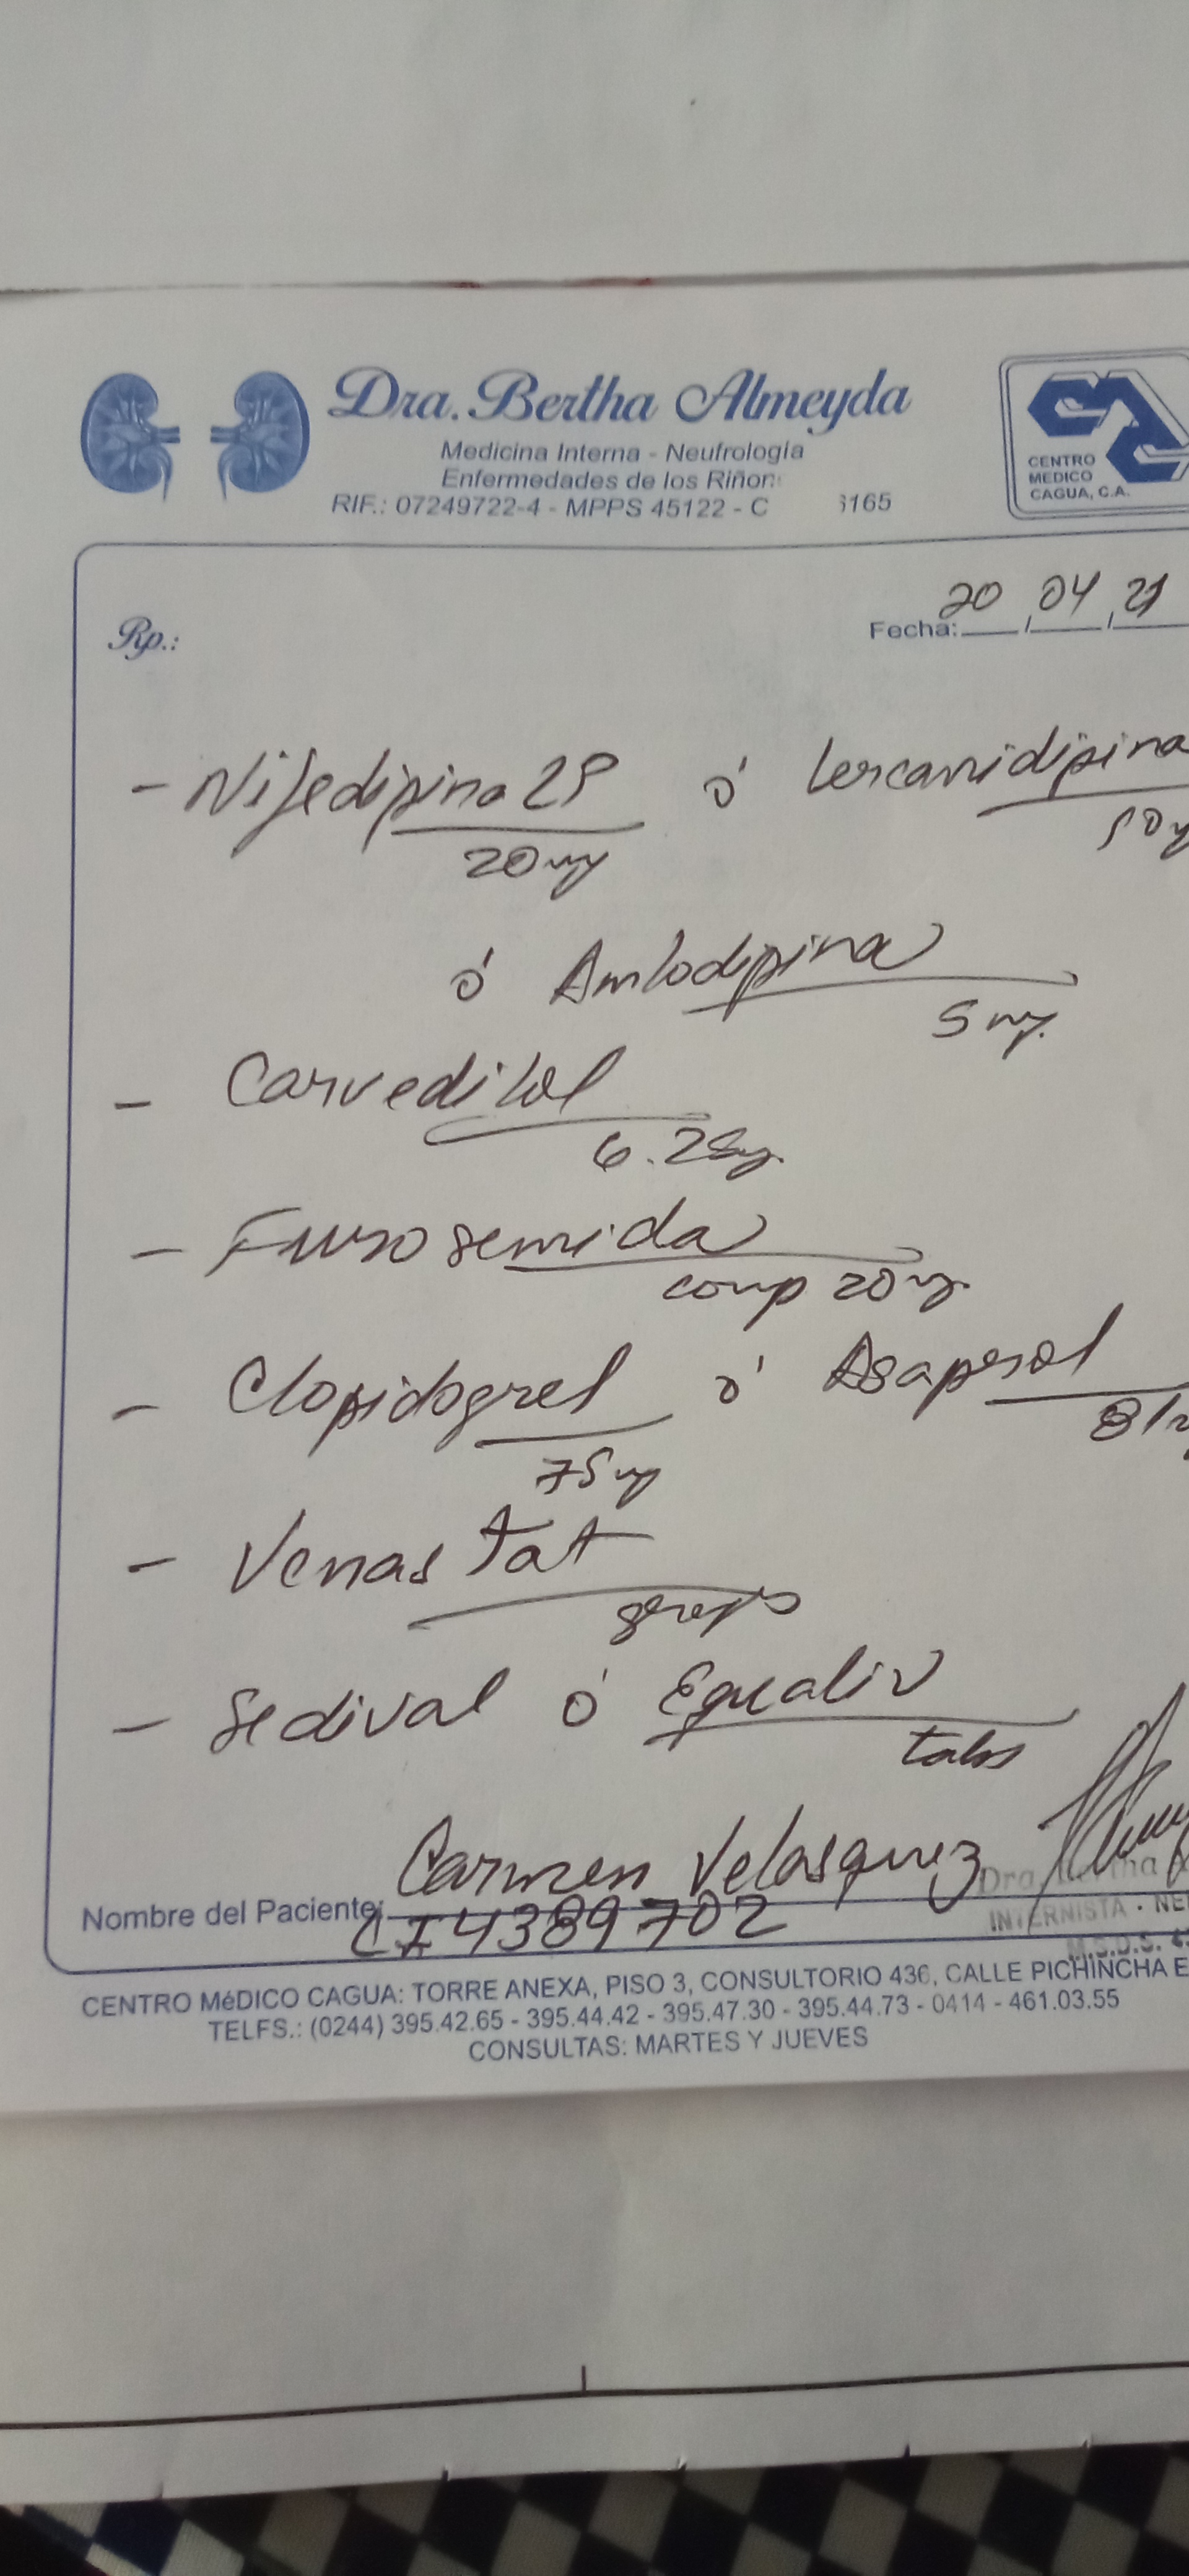 Dra. Bertha Almeyda
Medicina Interna - Neufrologia
Enfermedades de los Riñon
RIF.: 07249722-4 - MPPS 45122 - C 3165
CENTRO
MEDICO
CAGUA, C.A.
Rp.:
Fecha: 20 / 04 / 21
- Nifedipina ó Lercanidipina
20mg 10
ó Amlodipina
5 mg.
- Carvedilol
6.25mg.
- Furosemida
comp 20mg.
- Clopidogrel ó Asaprol
75mg 81
- Venastat
- Sedival ó Equaliv
tabs
Nombre del Paciente: Carmen Velasquez
CI 4389702
Dra.
INTERNISTA - NE
M.S.D.S.
CENTRO MéDICO CAGUA: TORRE ANEXA, PISO 3, CONSULTORIO 436, CALLE PICHINCHA E
TELFS.: (0244) 395.42.65 - 395.44.42 - 395.47.30 - 395.44.73 - 0414 - 461.03.55
CONSULTAS: MARTES Y JUEVES